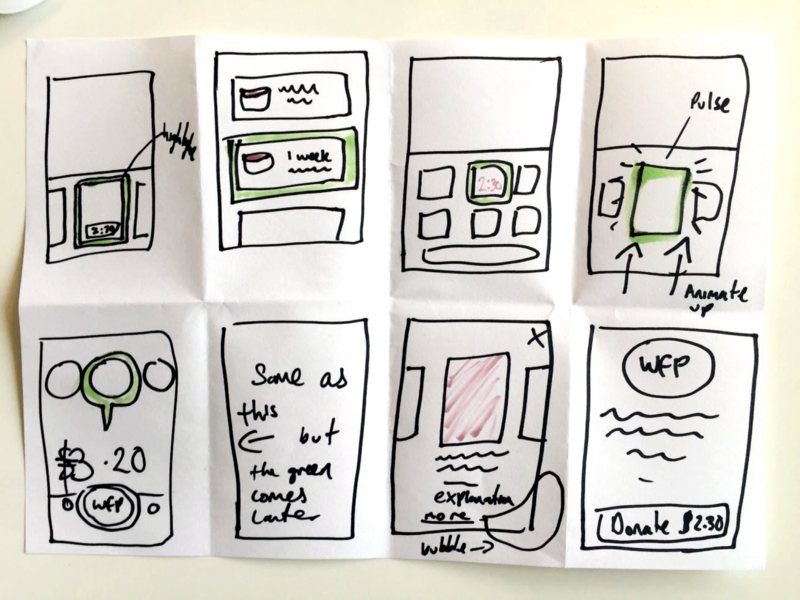 highlight
2:30
1 week
2:30
Pulse
Animate
up
$3.20
WFP
Same as
this
← but
the green
comes
later
X
explanation
more
bubble →
WFP
Donate $2.30